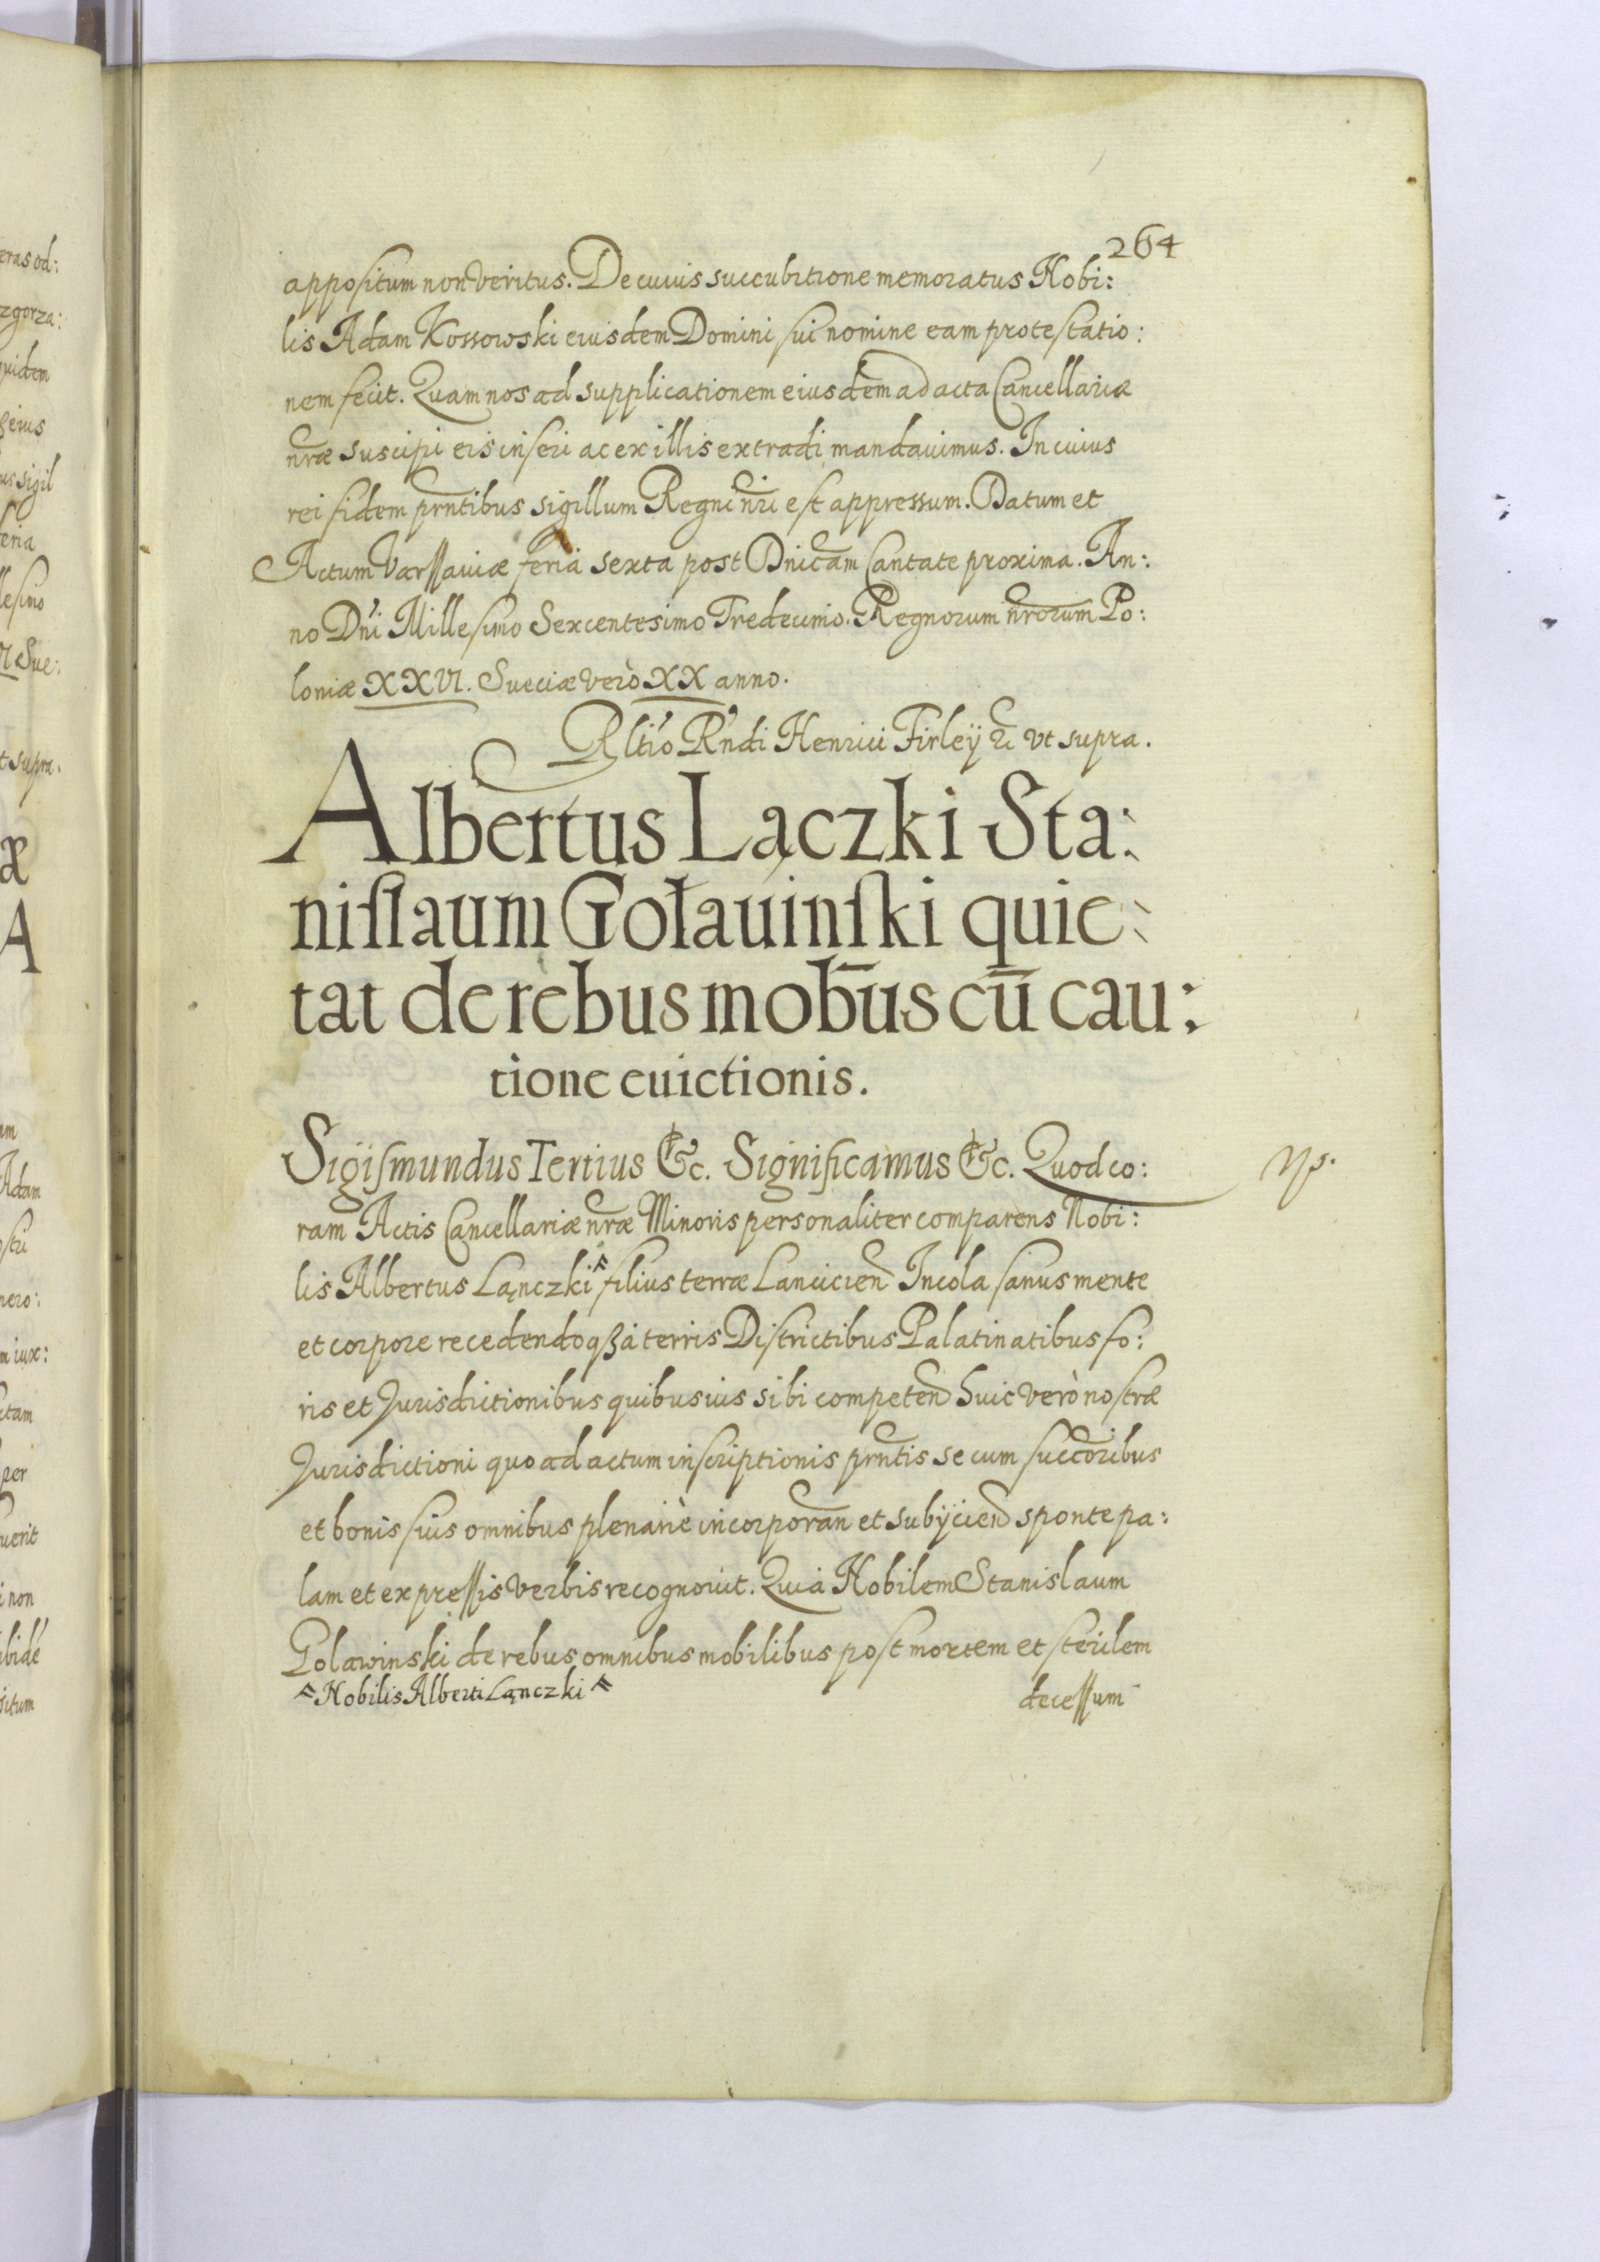 264
appositum non veritus. De cuius succubitione memoratus Nobi:
lis Adam Kossowski eiusdem Domini sui nomine eam protestatio:
nem fecit. Quam nos ad supplicationem eiusdem ad acta Cancellariæ
nræ suscipi eis inseri ac ex illis extradi mandavimus. In cuius
rei fidem prntibus sigillum Regni nri est appressum. Datum et
Actum Varssaviæ feria sexta post Dnicam Cantate proxima. An:
no Dni Millesimo Sexcentesimo Tredecimo. Regnorum nrorum Po:
loniæ XXVI. Sueciæ verò XX anno.
Rltio Rndi Henrici Firleÿ &c vt supra.
Albertus Lączki Sta:
nislaum Goławinski quie:
tat de rebus mobūs cū cau:
tione euictionis.
Sigismundus Tertius &c. Significamus &c. Quod co:
ram Actis Cancellariæ nræ Minoris personaliter comparens Nobi:
lis Albertus Lęnczki filius terræ Lancicien Incola sanus mente
et corpore recedendo qß à terris Districtibus Palatinatibus fo:
ris et Jurisdictionibus quibusuis sibi competen huic verò nostræ
Jurisdictioni quo ad actum inscriptionis prntis se cum succoribus
et bonis suis omnibus plenariè incorporan et subÿcien sponte pa:
lam et expressis verbis recognovit. Quia Nobilem Stanislaum
Golawinski de rebus omnibus mobilibus post mortem et sterilem
Nobilis Alberti Lęnczki
decessum